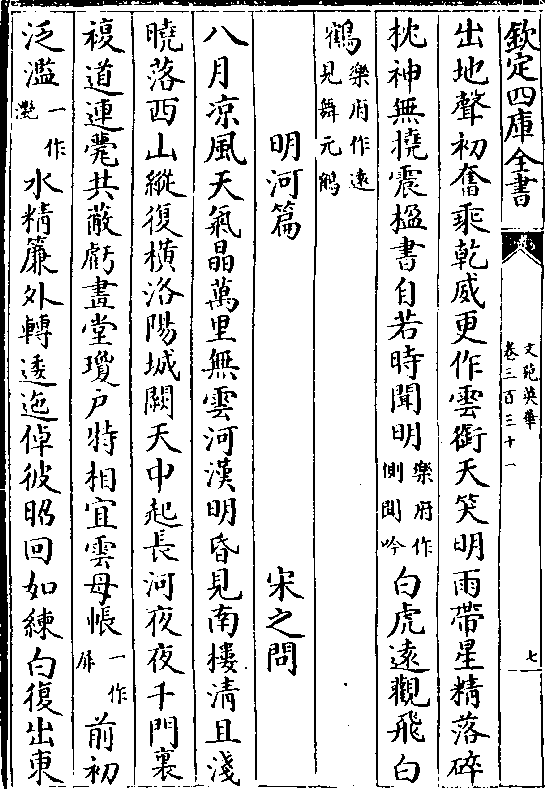 欽定四庫全書
文苑英華
卷三百三十一
七
出地聲初奮乘乾威更作雲銜天笑明雨帶星精落碎
枕神無撓震楹書自若時聞明樂府作側聞吟白虎遠觀飛白
鶴樂府作遠見舞元鶴
明河篇 宋之問
八月凉風天氣晶萬里無雲河漢明昏見南樓清且淺
曉落西山縱復横洛陽城闕天中起長河夜夜千門裏
複道連甍共蔽虧畫堂瓊户特相宜雲母帳一作屏前初
泛濫一作灎水精簾外轉逶迤倬彼昭回如練白復出東